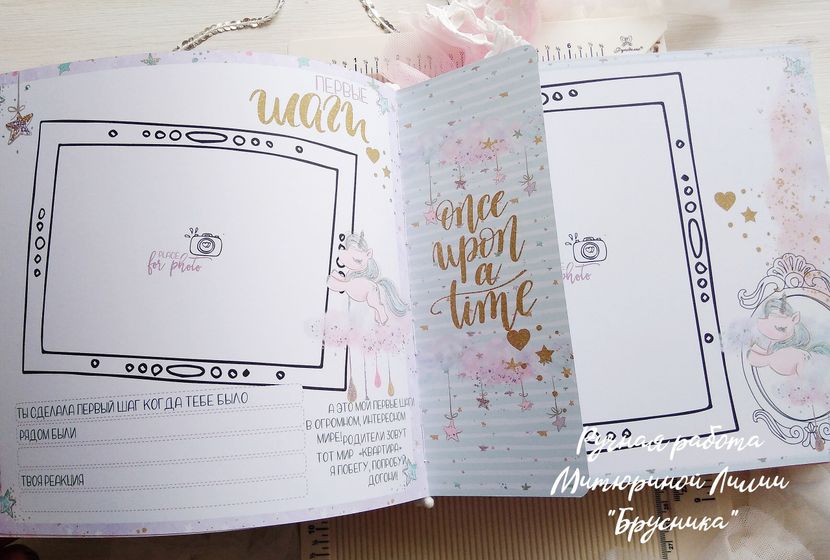 ПЕРВЫЕ
шаги
PLACE
for photo
ТЫ СДЕЛАЛА ПЕРВЫЙ ШАГ КОГДА ТЕБЕ БЫЛО
РЯДОМ БЫЛИ
ТВОЯ РЕАКЦИЯ
А ЭТО МОИ ПЕРВЫЕ ШАГИ
В ОГРОМНОМ, ИНТЕРЕСНОМ
МИРЕ! РОДИТЕЛИ ЗОВУТ
ТОТ МИР «КВАРТИРА»
Я ПОБЕГУ, ПОПРОБУЙ
ДОГОНИ!
once
upon
a
time
PLACE
for photo
Ручная работа
Митюриной Лилии
"Брусника"